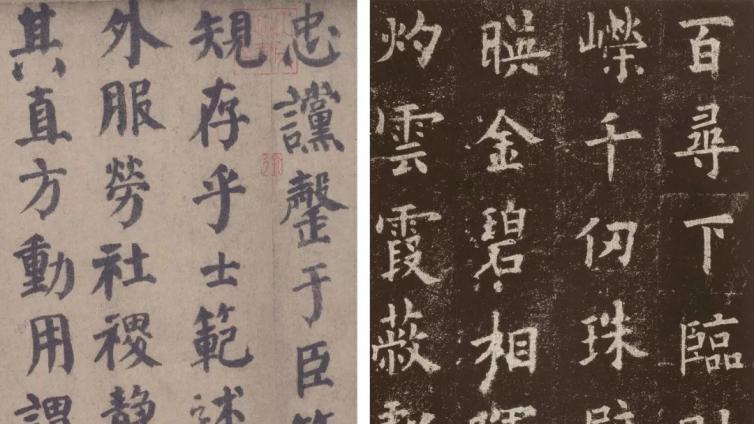 忠讜罄于臣
䂓存乎士範述
外服勞社稷靜
其直方動用謂
百尋下臨
嶸千仞珠
暎金碧相暉
灼雲霞蔽